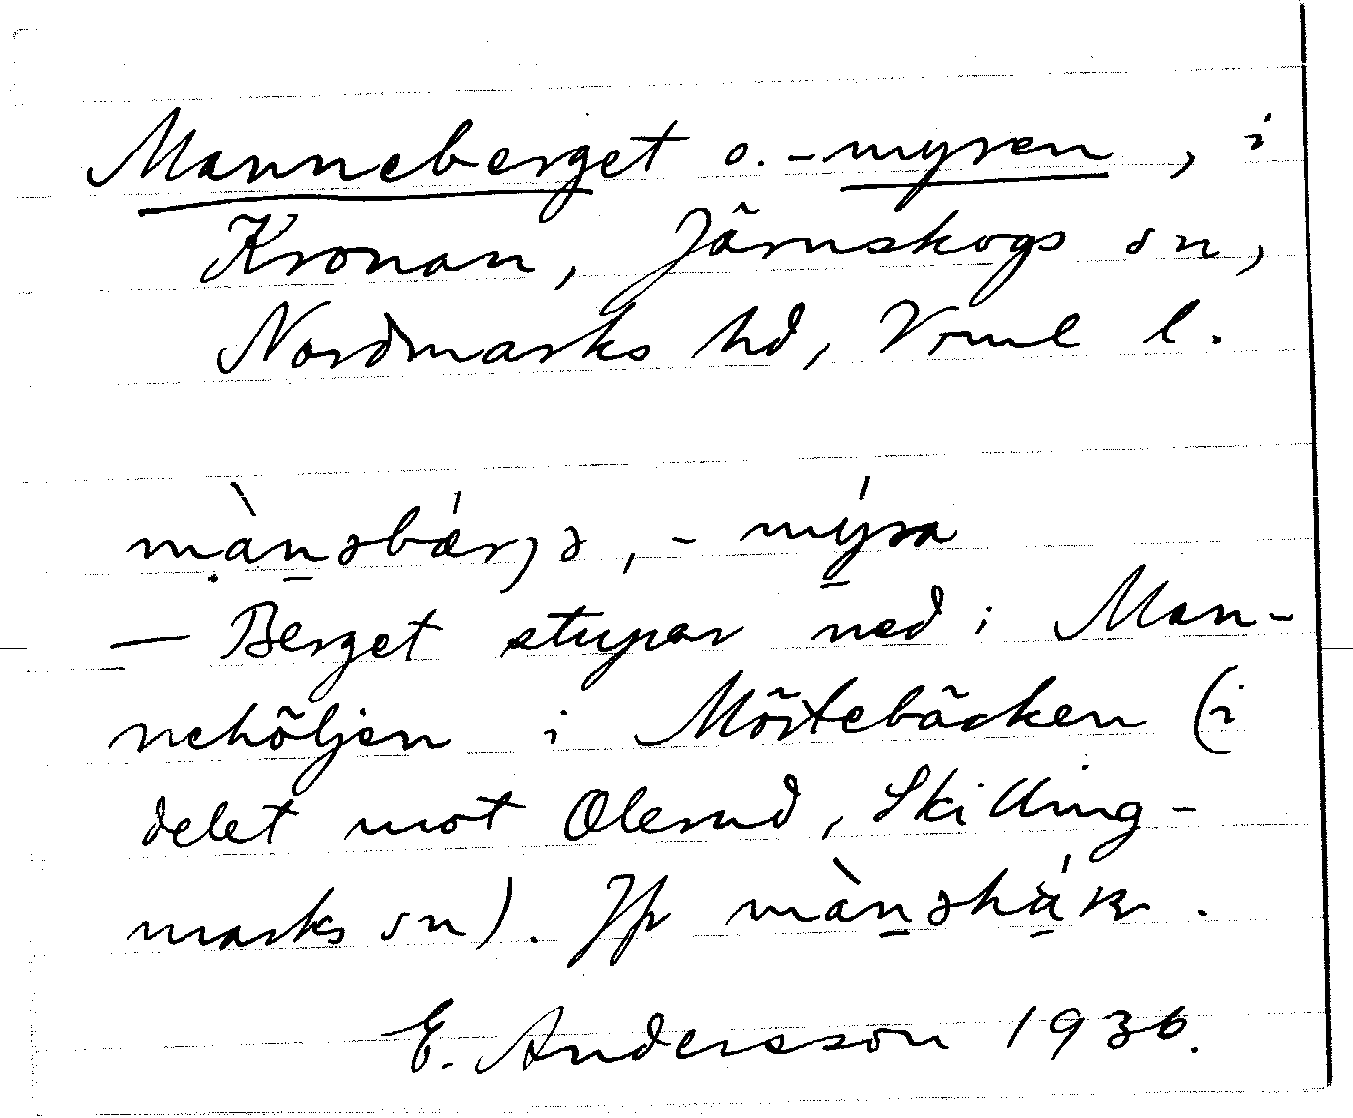 Manneberget o. -myren, i
Kronan, Järnskogs sn,
Nordmarks hd, Vrml l.
màn̠əbár̡ə, -mýra
— Berget stupar ned i Man-
nehöljen i Mörtebäcken (i
delet mot Olerud, Skilling-
marks sn). Jfr
E. Andersson 1936.